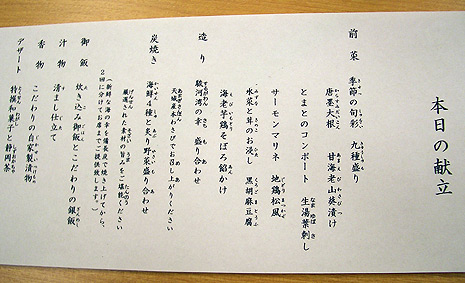 本日の献立
前菜 季節の旬彩 九種盛り
唐墨大根 甘海老山葵漬け
とまとのコンポート 生湯葉刺し
サーモンマリネ 地鶏松風
水菜と茸のお浸し 黒胡麻豆腐
海老芋鶏そぼろ餡かけ
造り 駿河湾の幸 盛り合わせ
天城産本わさびでお召し上がりください
炭焼き 海鮮4種と炙り野菜盛り合わせ
厳選された素材の旨みをご堪能ください
(新鮮な海の幸を備長炭で焼き上げてから、
2回に分けてお席までご提供致します。)
御飯 炊き込み御飯とこだわりの銀飯
汁物 清まし仕立て
香物 こだわりの自家製漬物
デザート 特撰和菓子と静岡茶